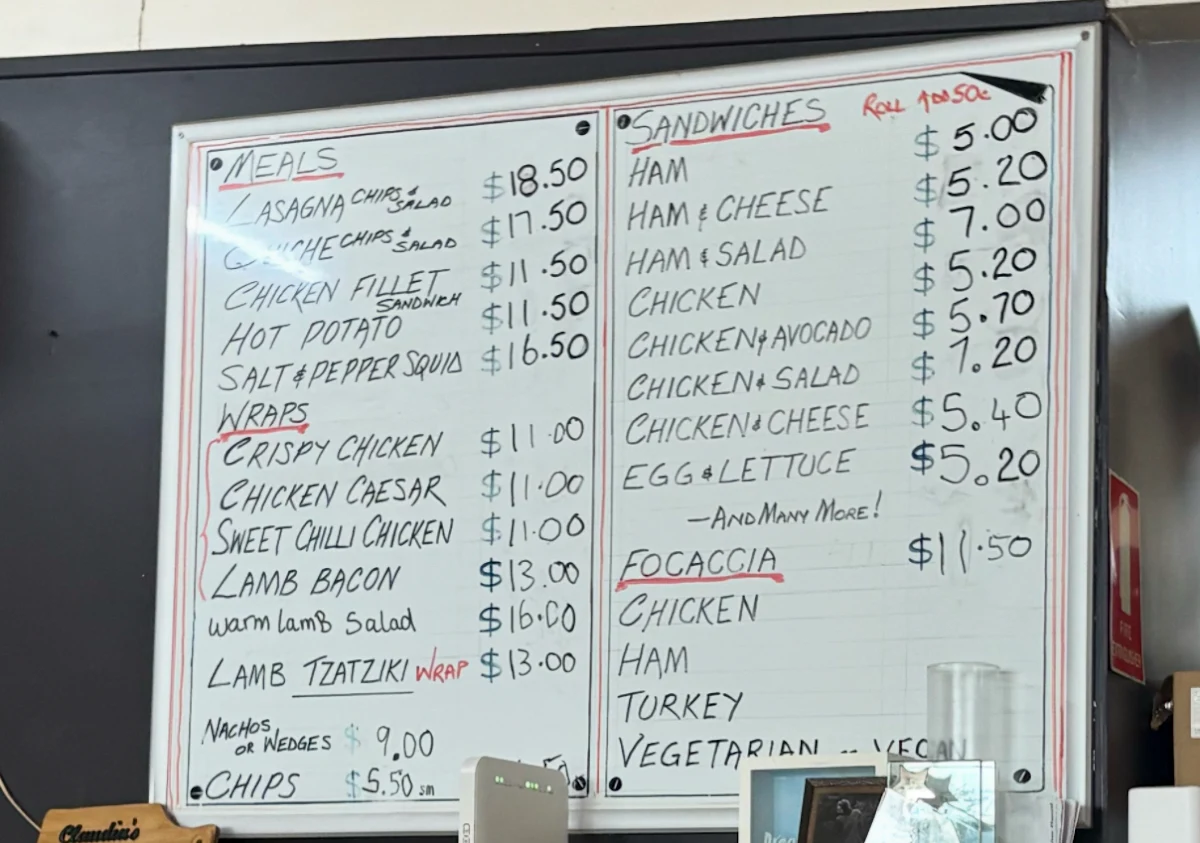 MEALS
LASAGNA CHIPS & SALAD $18.50
QUICHE CHIPS & SALAD $17.50
CHICKEN FILLET SANDWICH $11.50
HOT POTATO $11.50
SALT & PEPPER SQUID $16.50
WRAPS
CRISPY CHICKEN $11.00
CHICKEN CAESAR $11.00
SWEET CHILLI CHICKEN $11.00
LAMB BACON $13.00
warm lamB Salad $16.00
LAMB TZATZIKI WRAP $13.00
NACHOS OR WEDGES $9.00
CHIPS $5.50 sm
SANDWICHES ROLL ADD 50c
HAM $5.00
HAM & CHEESE $5.20
HAM & SALAD $7.00
CHICKEN $5.20
CHICKEN & AVOCADO $5.70
CHICKEN & SALAD $7.20
CHICKEN & CHEESE $5.40
EGG & LETTUCE $5.20
—AND MANY MORE!
FOCACCIA $11.50
CHICKEN
HAM
TURKEY
VEGETARIAN VEGAN
FIRE
EXTINGUISHER
Claudia's